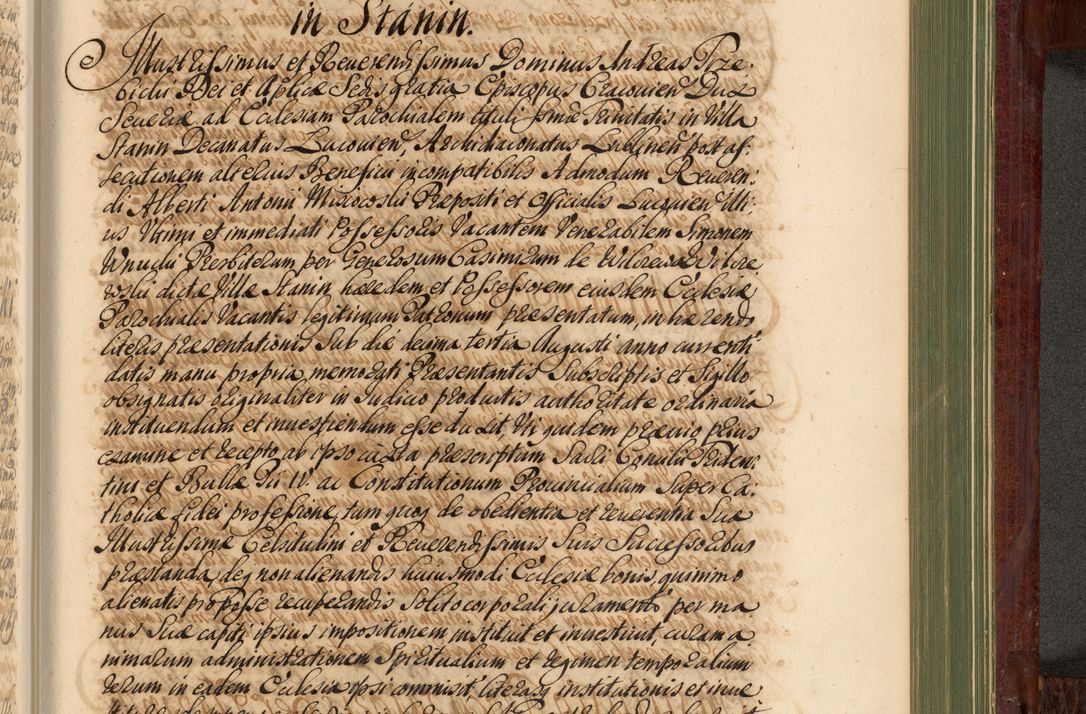 in Stanin.
Illustrissimus et Reverendissimus Dominus Andreas Trze-
bicki Dei et Aplicæ Sedis gratia Episcopus Cracovien Dux
Severiæ ad Ecclesiam Parochialem tituli ssmæ Trinitatis in Villa
Stanin Decanatus Lucovien, Archidiaconatus Lublinen post as-
secutionem alterius Beneficii incompatibilis Admodum Reveren-
di Alberti Antonii Præpositi et Officialis Lucovien Illi-
us Ultimi et immediati Possessoris Vacantem Venerabilem Simonem
Wnucki Presbiterum per Generosum Casimirum de
dictæ Villæ Stanin hæredem et Possessorem eiusdem Ecclesiæ
Parochialis Vacantis legitimum Patronum præsentatum, inhærendo
literis præsentationis sub die decima tertia Augusti anno currenti
datis manu propria memorati Præsentantis Subscriptis et Sigillo
obsignatis originaliter in Judicio productis authoritate ordinaria
instituendum et investiendum esse duxit, Uti quidem prævio prius
examine et recepto ab ipso iuxta præscriptum Sacri Concilii Triden-
tini et Bullæ Pii IV. ac Constitutionum Provincialium Super Ca-
tholicæ fidei professione, tum quoq de obedientia et reverentia Suæ
Illustrissimæ Celsitudini et Reverendissimis Suis Successoribus
præstanda, deq non alienandis huiusmodi Ecclesiæ bonis, quinimo
alienatis pro posse recuperandis Solito corporali juramento per ma
nus Suæ capiti ipsius impositionem instituit et investivit, curam a
nimarum administrationem Spiritualium et regimen temporalium
rerum in eadem Ecclesia ipsi commisit, literasq institutionis et inve